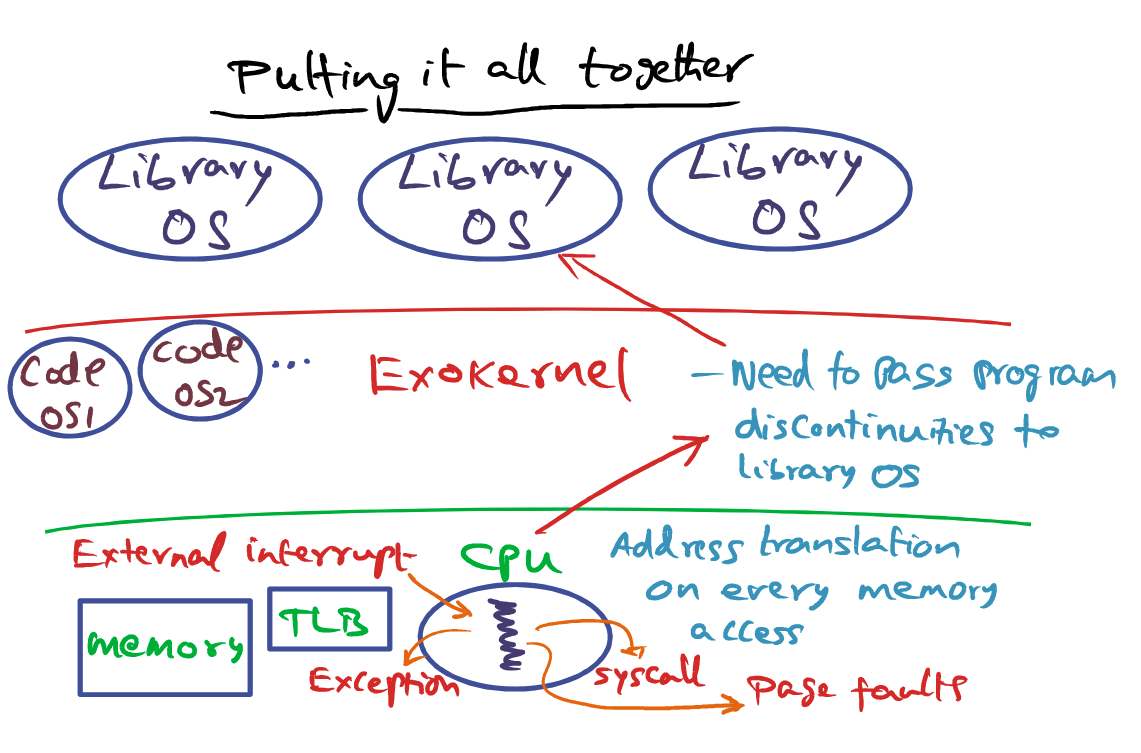 Putting it all together
Library
OS
Library
OS
Library
OS
Code
OS1
Code
OS2
...
Exokernel
– Need to pass program
discontinuities to
library OS
External interrupt
CPU
Address translation
on every memory
access
memory
TLB
Exception
syscall
Page faults